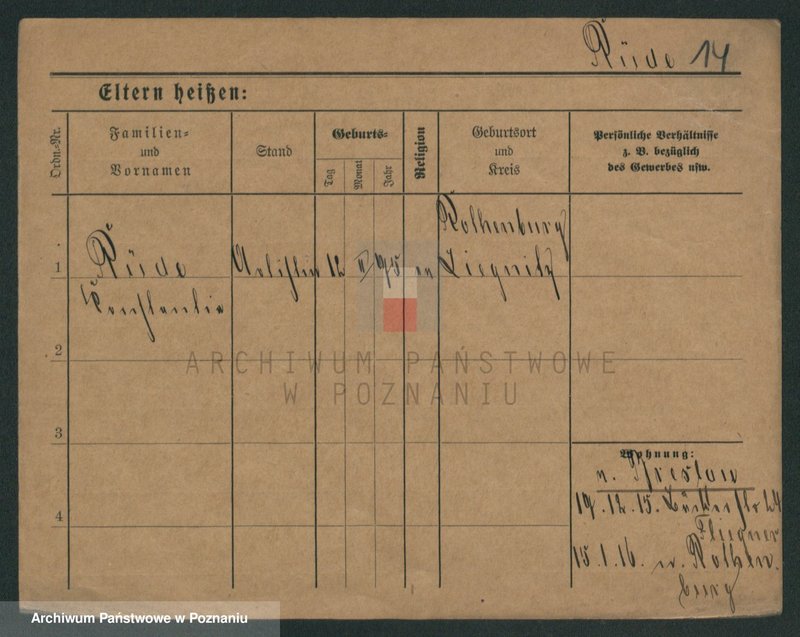 Rüde 14
Eltern heißen:
Ordn.-Nr.
Familien-
und
Vornamen
Stand
Geburts-
Tag
Monat
Jahr
Religion
Geburtsort
und
Kreis
Persönliche Verhältnisse
z. B. bezüglich
des Gewerbes usw.
1
Rüde
Konstantin
Artistin
12
II
95
Rothenburg
Liegnitz
2
3
4
Wohnung:
n. Breslau
19.12.15. 24
Fliegner
15.1.16. n. Rothen
burg
ARCHIWUM PAŃSTWOWE
W POZNANIU
Archiwum Państwowe w Poznaniu